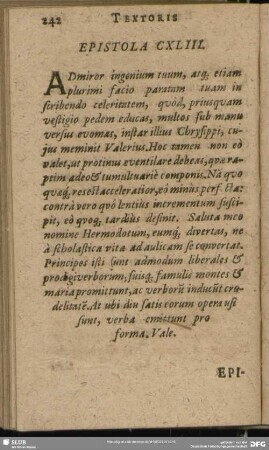 242 TEXTORIS
EPISTOLA CXLIII.
ADmiror ingenium tuum, atq; etiam
plurimi facio paratam tuam in
scribendo celeritatem, quòd, priusquam
vestigio pedem educas, multos sub manu
versus evomas, instar illius Chrysippi, cu-
jus meminit Valerius. Hoc tamen non eò
valet, ut protinus eventilare debeas, quæ ra-
ptim adeo & tumultuariè componis. Nã quo
quæq; res est acceleratior, eò minùs perfecta:
contrà vero quò lentius incrementum susci-
pit, eò quoq; tardiùs desinit. Saluta meo
nomine Hermodotum, eumq; divertat, ne
à scholastica vita ad aulicam se convertat.
Principes isti sunt admodum liberales &
prodigi verborum, suisq; famulis montes &
maria promittunt, ac verborũ inducũt cru-
delitatẽ. At ubi diu satis eorum opera usi
sunt, verba emittunt pro
forma. Vale.
EPI-
SLUB
DFG